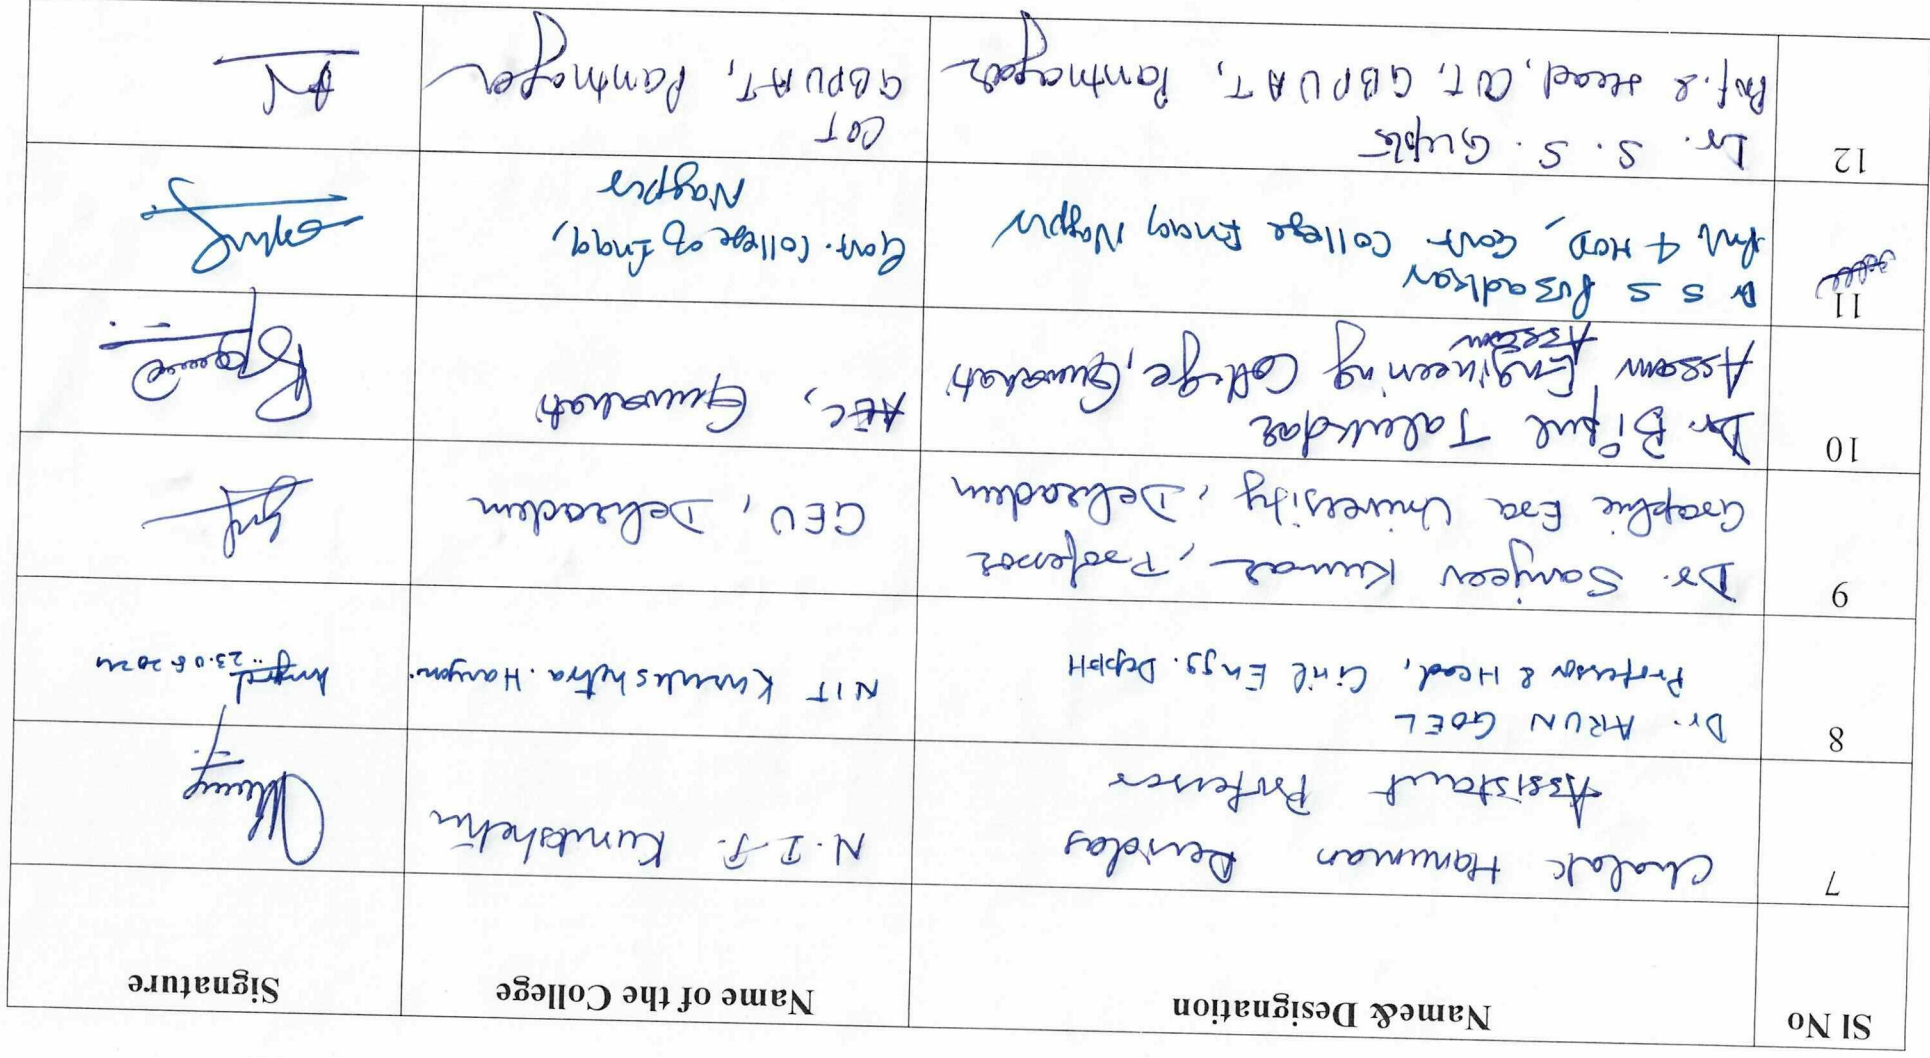 Sl No
Name& Designation
Name of the College
Signature
7
Chalak Hanuman Devidas
Assistant Professor
N.I.T. Kurukshetra
8
Dr. ARUN GOEL
Professor & Head, Civil Engg. Deptt
NIT Kurukshetra. Haryana.
23.05.2024
9
Dr. Sanjeev Kumar, Professor
Graphic Era University, Dehradun
GEU, Dehradun
10
Dr. Bipul Talukdar
Assam Engineering College, Guwahati
Assam
AEC, Guwahati
11
Dr S S Pusadkar
Prof & HOD, Govt. College Engg, Nagpur
Govt. College of Engg,
Nagpur
12
Dr. S. S. Gupta
Prof. & Head, COT, GBPUAT, Pantnagar
COT
GBPUAT, Pantnagar